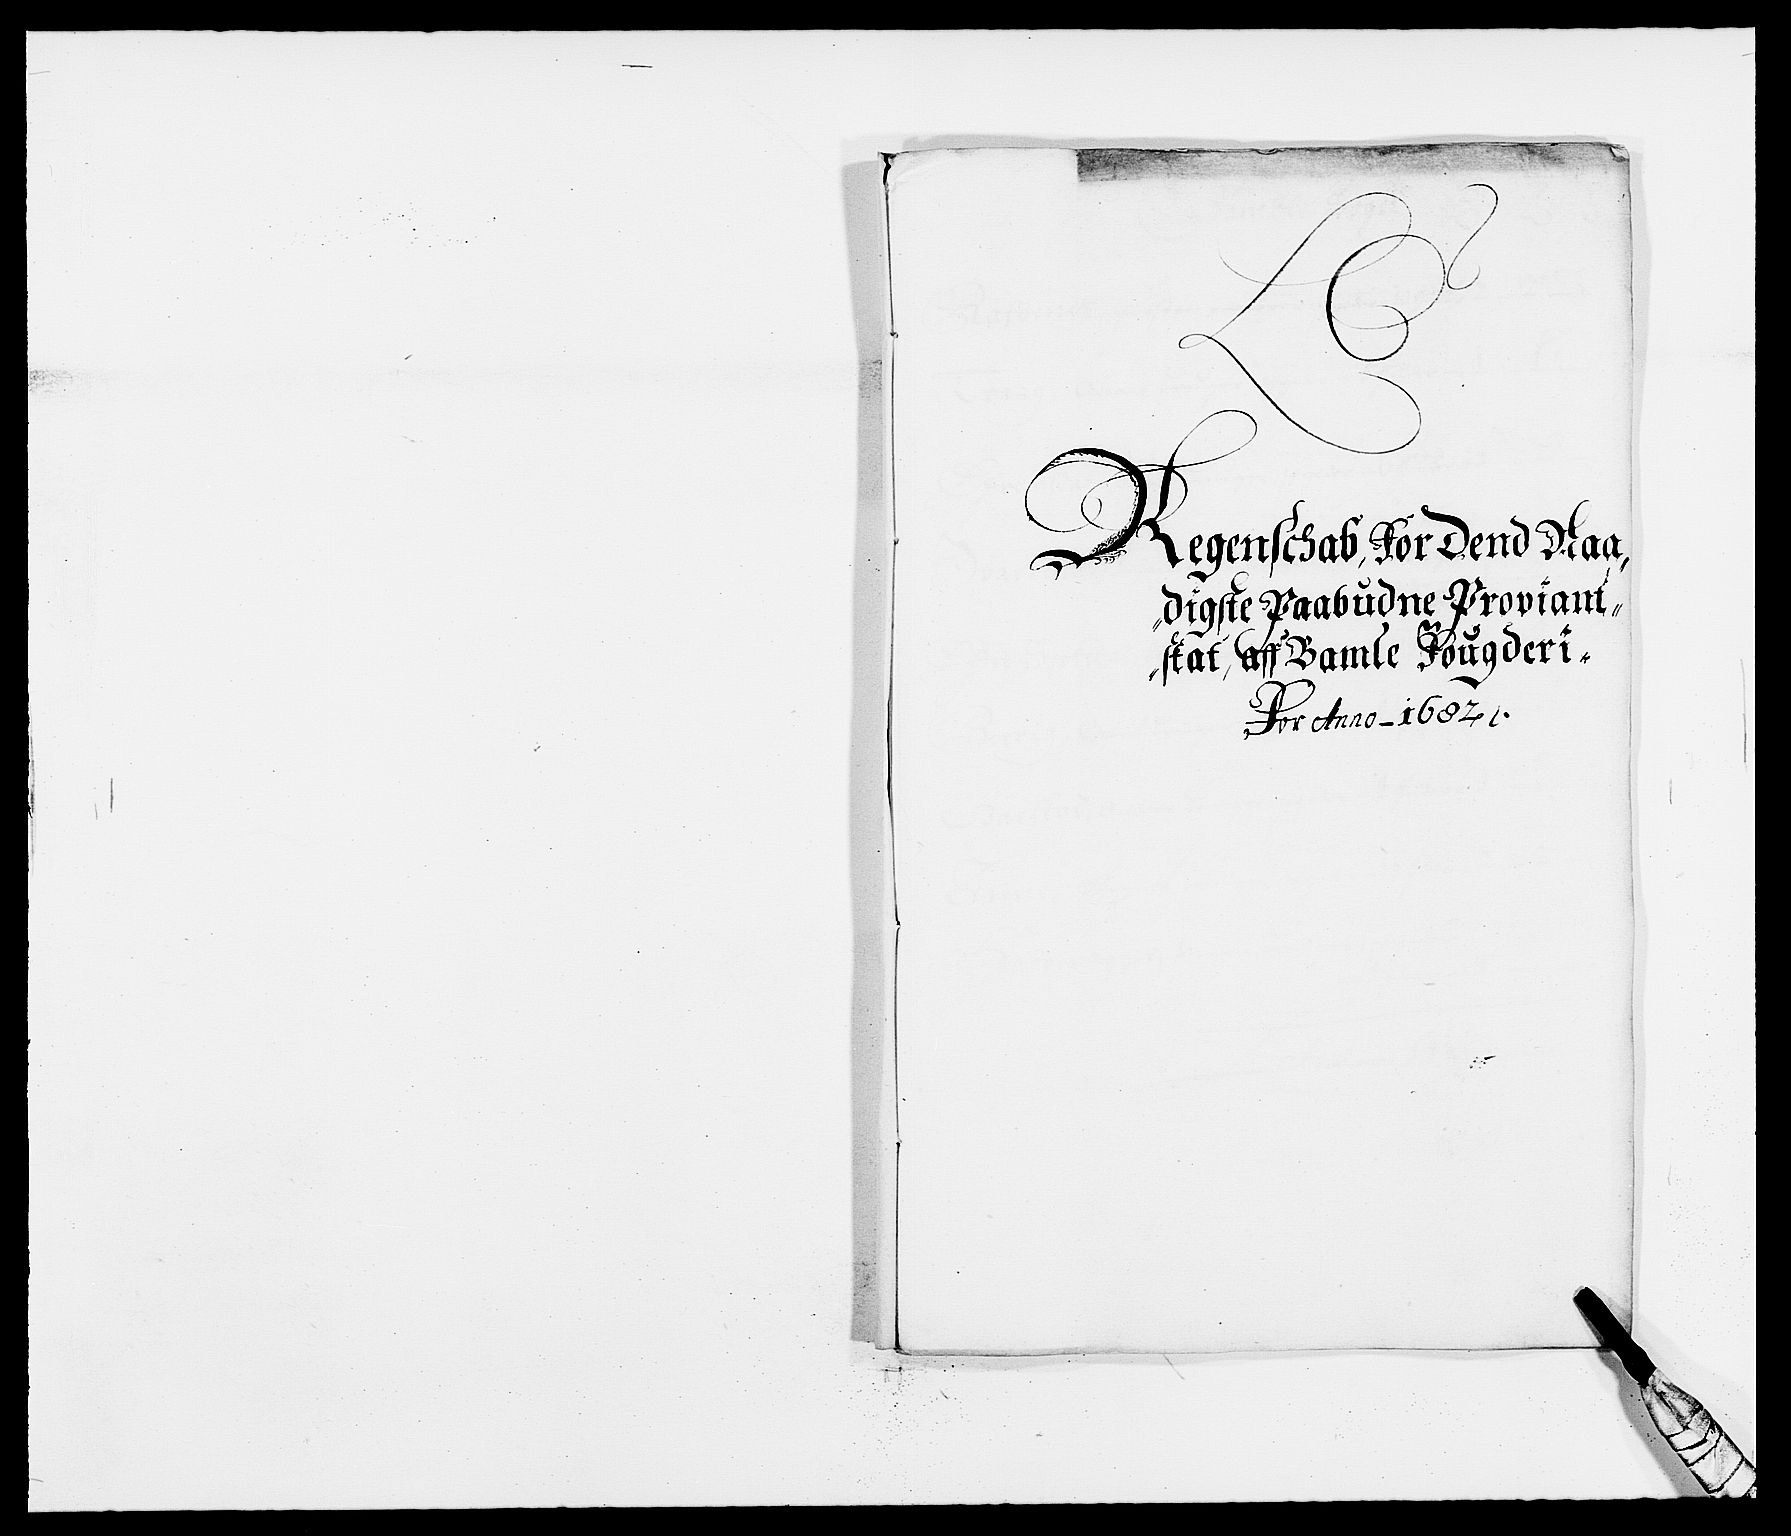 Regenschab, For Dend Naa,
„digste Paabudne Proviant„
„skat, aff Bamle Fougderi„
For Anno - 1682